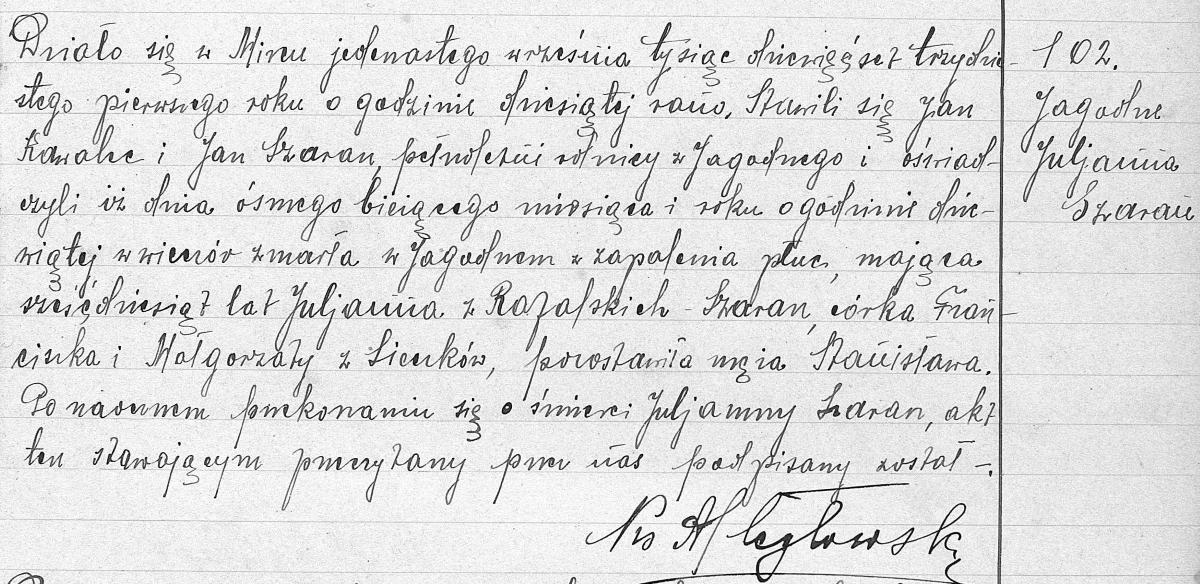 Działo się w Mircu jedenastego września tysiąc dziewięćset trzydzie-
stego pierwszego roku o godzinie dziesiątej rano. Stawili się Jan
Kawalec i Jan Szaran, pełnoletni rolnicy z Jagodnego i oświad-
czyli iż dnia ósmego bieżącego miesiąca i roku o godzinie dzie-
wiątej wieczór zmarła w Jagodnem z zapalenia płuc, mająca
sześćdziesiąt lat Juljanna z Rafalskich - Szaran, córka Fran-
ciszka i Małgorzaty z Sieczków, pozostawiła męża Stanisława.
Po naocznem przekonaniu się o śmierci Juljanny Szaran, akt
ten stawającym przeczytany przez nas podpisany został -.
102.
Jagodne
Juljanna
Szaran